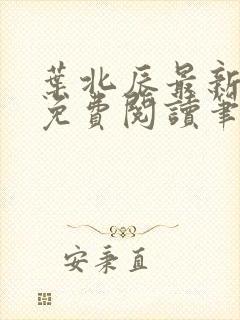 葉北辰最新
免費閱讀筆
安秉直